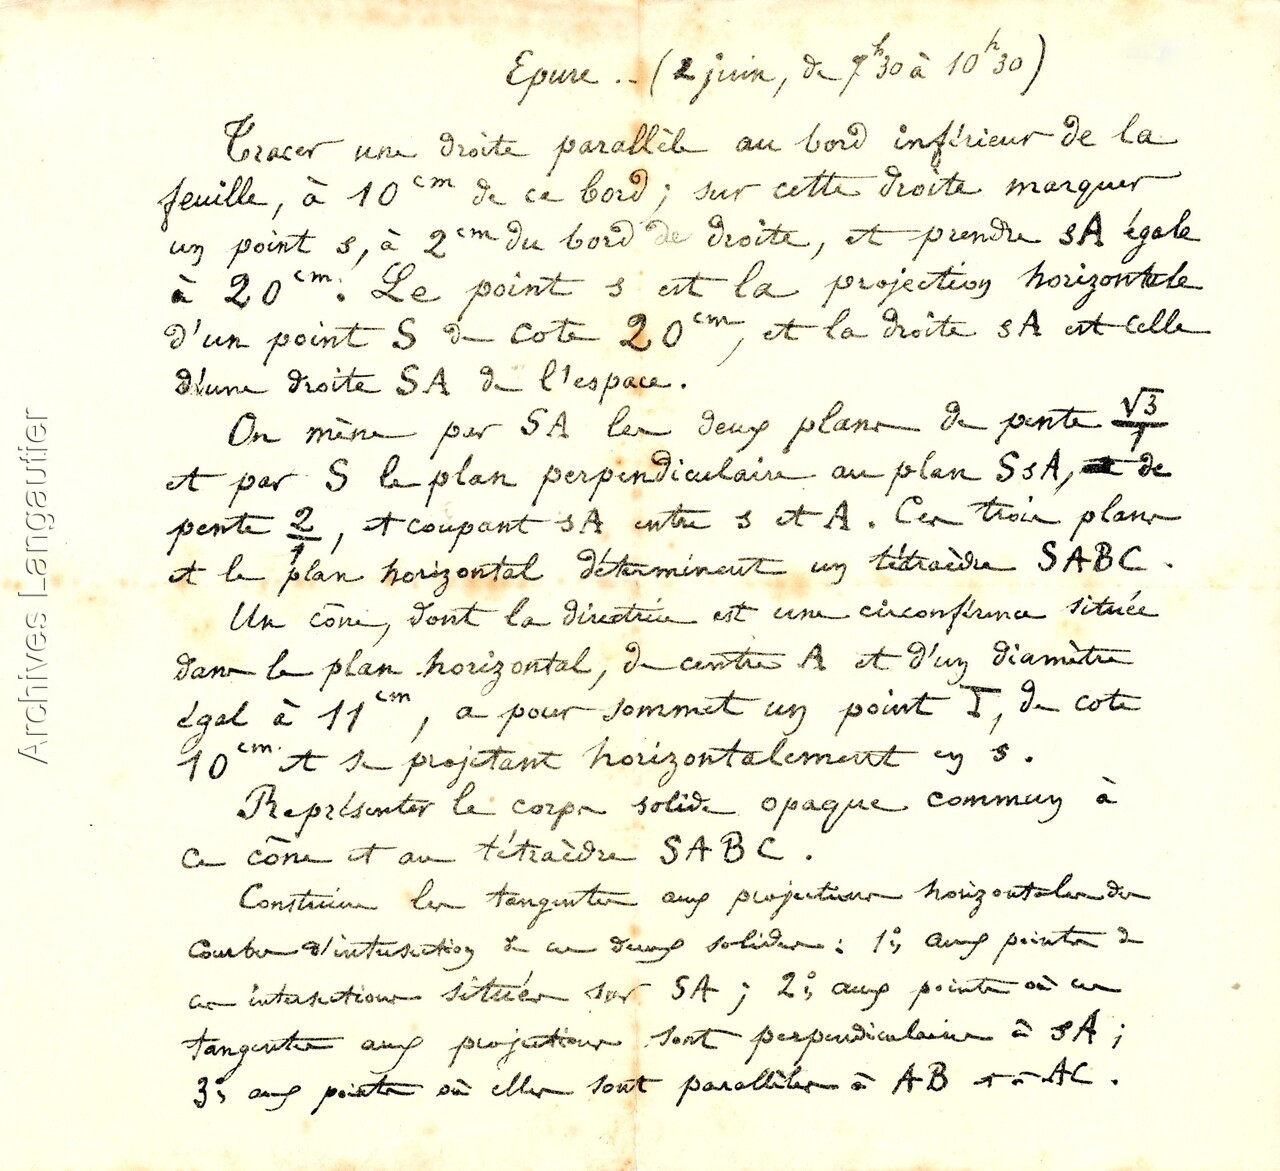 Epure .. (2 juin, de 7h30 à 10h30)
Tracer une droite parallèle au bord inférieur de la
feuille, à 10cm de ce bord ; sur cette droite marquer
un point s, à 2cm du bord de droite, et prendre sA égale
à 20cm. Le point s est la projection horizontale
d'un point S de cote 20cm, et la droite sA est celle
d'une droite SA de l'espace.
On mène par SA les deux plans de pente √3/1
et par S le plan perpendiculaire au plan SsA, de
pente 2/1, et coupant sA entre s et A. Ces trois plans
et le plan horizontal déterminent un tétraèdre SABC.
Un cône, dont la directrice est une circonférence située
dans le plan horizontal, de centre A et d'un diamètre
égal à 11cm, a pour sommet un point I, de cote
10cm. et se projetant horizontalement en s.
Représenter le corps solide opaque commun à
ce cône et au tétraèdre SABC.
Construire les tangentes aux projections horizontales des
courbes d'intersection de ces deux solides : 1º, aux points de
ces intersections situées sur SA ; 2º, aux points où ces
tangentes aux projections sont perpendiculaires à sA ;
3º, aux points où elles sont parallèles à AB et à AC.
Archives Langautier